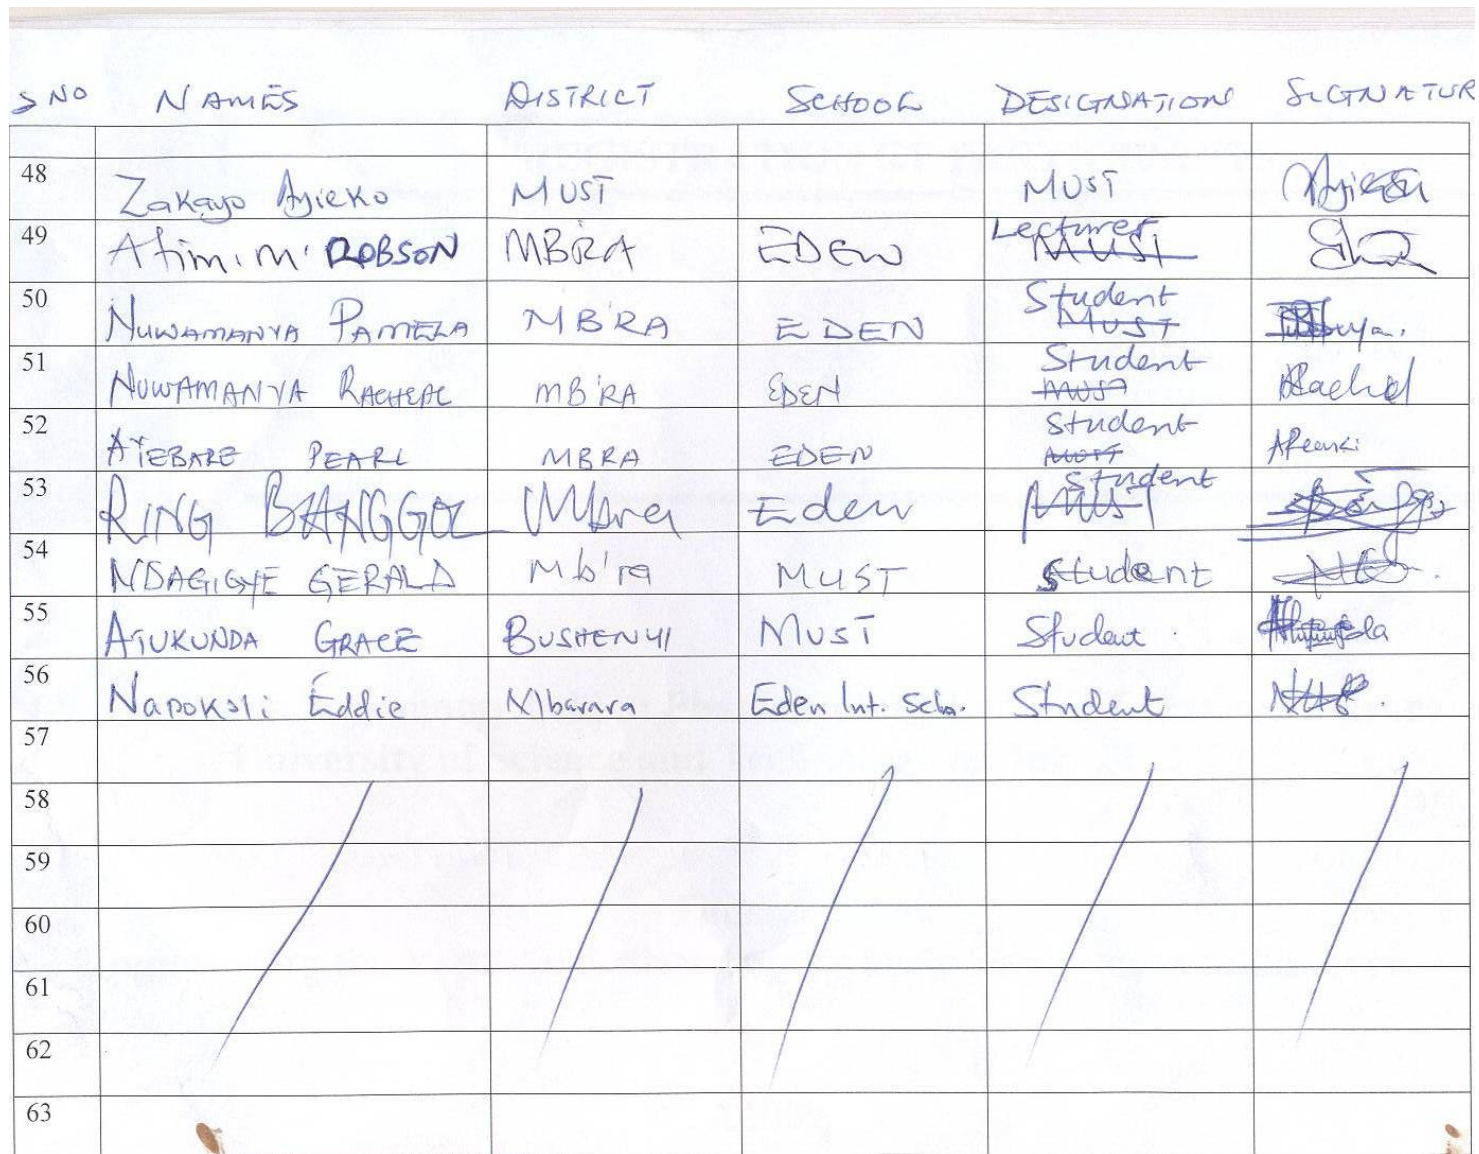 S NO NAMES DISTRICT SCHOOL DESIGNATION SIGNATUR
48 Zakayo Ayieko MUST MUST Ayieko
49 Atim. M. ROBSON MB'RA EDEN Lecturer MUST
50 NUWAMANYA PAMELA MB'RA EDEN Student MUST
51 NUWAMANYA RACHEAL MB'RA EDEN Student MUST Rachel
52 ATEBARE PEARL MBRA EDEN Student MUST
53 RING BANGGOL Mbra Eden Student MUST
54 NDAGIGYE GERALD Mb'ra MUST Student
55 ATUKUNDA GRACE BUSHENYI MUST Student
56 Napokoli Eddie Mbarara Eden Int. Sch. Student
57
58
59
60
61
62
63